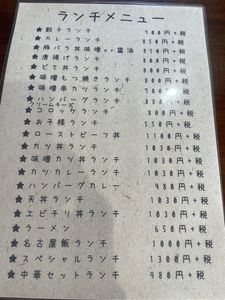 ランチメニュー
★餃子ランチ 700円+税
★カレーランチ 850円+税
★豚バラ丼味噌or醤油 850円+税
★唐揚げランチ 800円+税
★どて丼ランチ 800円+税
★味噌もつ焼きランチ 880円+税
★味噌串カツランチ 700円+税
★ハンバーグランチ 880円+税
★クリームチーズコロッケランチ 円+税
★お子様ランチ 550円+税
★ローストビーフ丼 1100円+税
★カツ丼ランチ 1030円+税
★味噌カツ丼ランチ 1030円+税
★カツカレーランチ 1030円+税
★ハンバーグカレー 980円+税
★天丼ランチ 1030円+税
★エビチリ丼ランチ 1030円+税
★ラーメン 650円+税
★名古屋飯ランチ 1000円+税
★スペシャルランチ 1300円+税
★中華セットランチ 980円+税